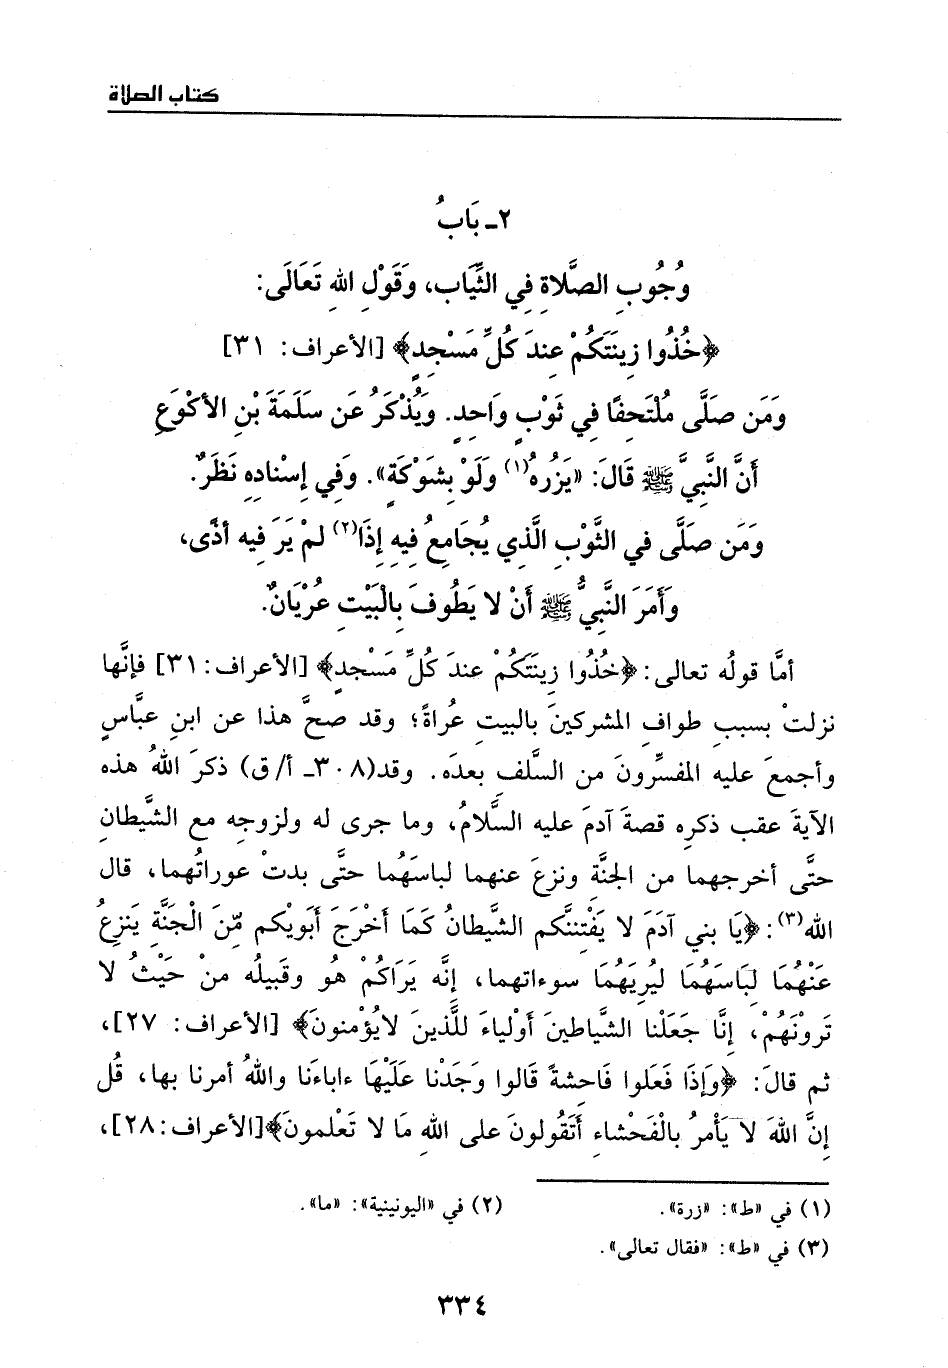 كتاب الصلاة
٢ـ بَابُ
وُجُوبِ الصَّلَاةِ فِي الثِّيَابِ، وَقَوْلِ اللهِ تَعَالَى:
﴿خُذُوا زِينَتَكُمْ عِندَ كُلِّ مَسْجِدٍ﴾ [الأعراف: ٣١]
وَمَن صَلَّى مُلْتَحِفًا فِي ثَوْبٍ وَاحِدٍ. وَيُذْكَرُ عَن سَلَمَةَ بْنِ الأَكْوَعِ
أَنَّ النَّبِيَّ ﷺ قَالَ: «يَزُرهُ(١) وَلَوْ بِشَوْكَةٍ». وَفِي إِسْنَادِهِ نَظَرٌ.
وَمَن صَلَّى فِي الثَّوْبِ الَّذِي يُجَامِعُ فِيهِ إِذَا(٢) لمْ يَرَ فِيهِ أَذًى،
وَأَمَرَ النَّبِيُّ ﷺ أَنْ لا يَطُوفَ بِالْبَيْتِ عُرْيَانٌ.
أمَّا قولُه تعالى: ﴿خُذُوا زِينَتَكُمْ عندَ كُلِّ مَسْجدٍ﴾ [الأعراف: ٣١] فإنَّها
نزلتْ بسببِ طوافِ المشركينَ بالبيتِ عُراةً؛ وقد صحَّ هذا عن ابنِ عبَّاسٍ
وأجمعَ عليه المفسِّرونَ من السَّلفِ بعدَه. وقد(٣٠٨ـ أ/ق) ذكرَ اللهُ هذه
الآيةَ عقب ذكرِه قصةَ آدمَ عليه السَّلامُ، وما جرى له ولزوجِه مع الشَّيطانِ
حتَّى أخرجهما من الجنَّةِ ونزعَ عنهما لباسَهُما حتَّى بدتْ عوراتُهما، قال
الله(٣): ﴿يَا بني آدَمَ لا يَفْتننَّكم الشَّيطانُ كَمَا أَخْرَجَ أَبَويْكم مِّنَ الْجَنَّةِ يَنزِعُ
عَنْهُمَا لِبَاسَهُمَا لِيُرِيَهُمَا سوءاتهما، إنَّه يَرَاكُمْ هُو وقَبيلُه منْ حَيْثُ لا
تَرونَهُمْ، إنَّا جَعَلْنا الشَّياطينَ أَوْلياءَ للَّذينَ لايُؤْمنونَ﴾ [الأعراف: ٢٧]،
ثم قالَ: ﴿وَإذَا فَعَلوا فَاحشةً قَالوا وَجَدْنا عَلَيْهَا ءاباءَنا واللهُ أمرنا بها، قُل
إنَّ اللهَ لا يَأْمرُ بالْفَحْشاءِ أَتَقُولونَ على اللهِ مَا لا تَعْلمونَ﴾[الأعراف:٢٨]،
(١) في «ط»: «زرة». (٢) في «اليونينية»: «ما».
(٣) في «ط»: «فقال تعالى».
٣٣٤